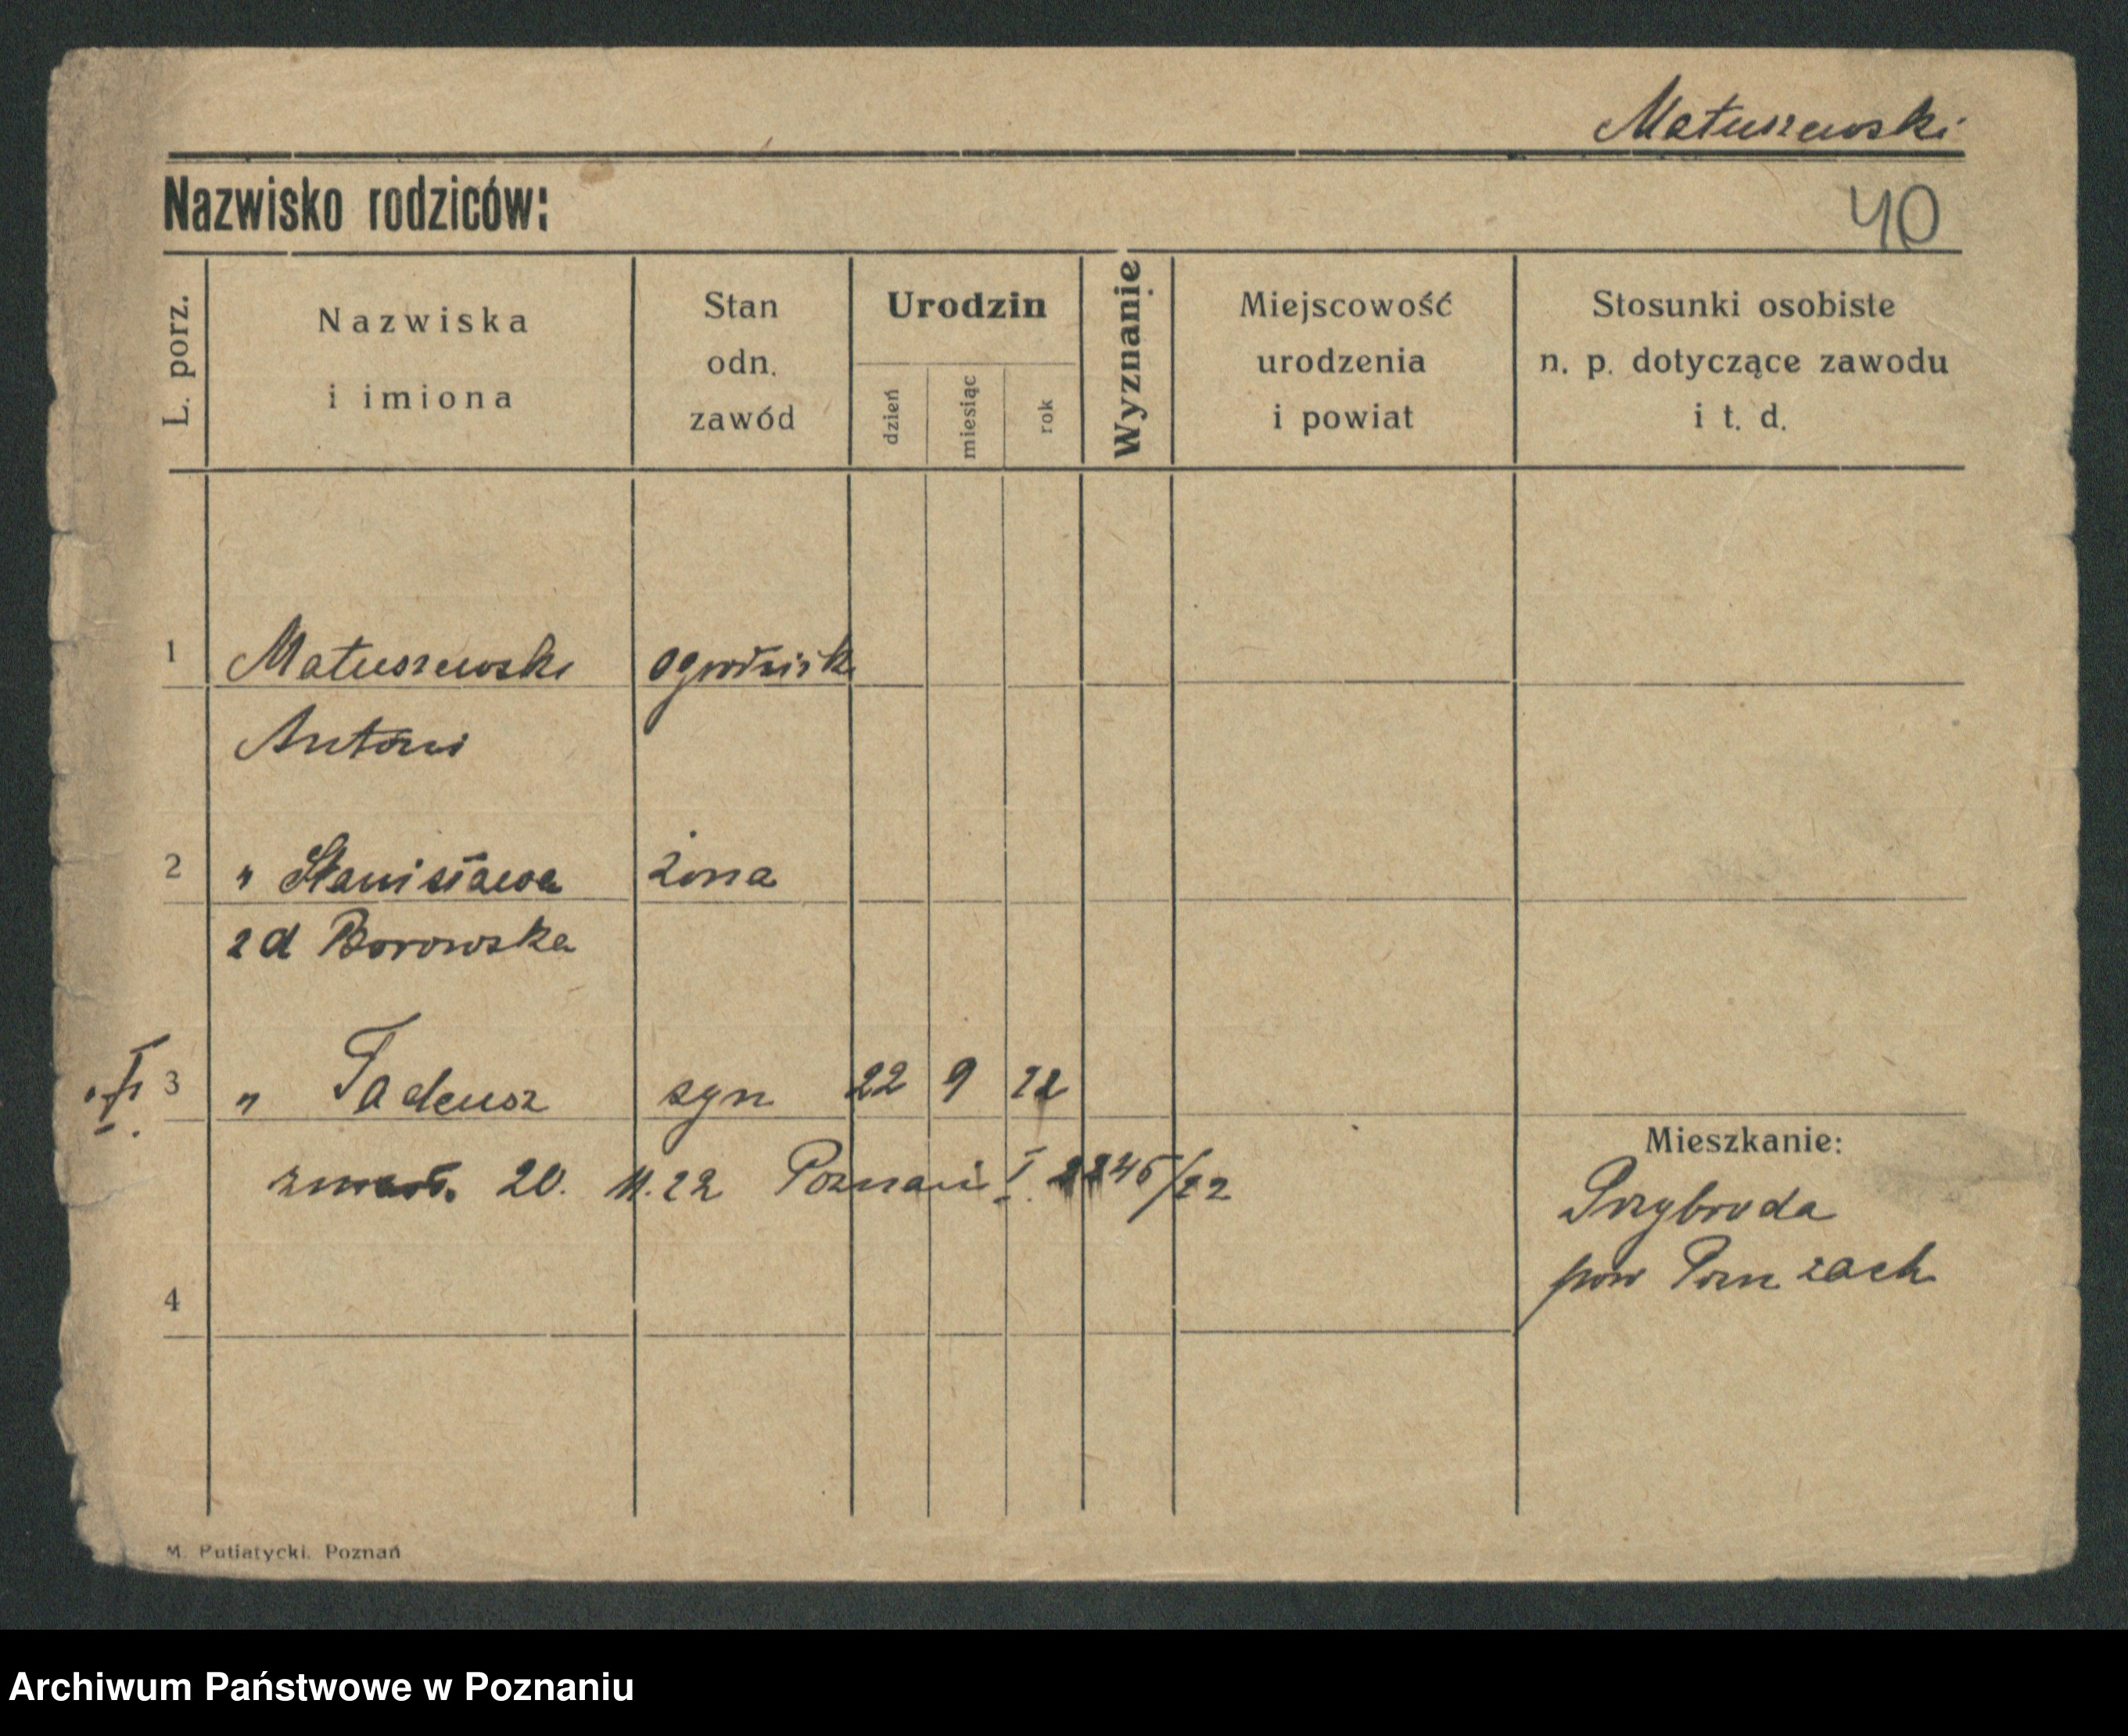 Matuszewski
Nazwisko rodziców:
40
L. porz.
Nazwiska
i imiona
Stan
odn.
zawód
Urodzin
dzień
miesiąc
rok
Wyznanie
Miejscowość
urodzenia
i powiat
Stosunki osobiste
n. p. dotyczące zawodu
i t. d.
1 Matuszewski ogrodnik
Antoni
2 " Stanisława żona
zd Borowska
3 " Tadeusz syn 22 9 22
zmarł. 20. 11. 22 Poznań I. 2245/22
Mieszkanie:
Przybroda
pow Pozn zach
4
M. Putiatycki. Poznań
Archiwum Państwowe w Poznaniu